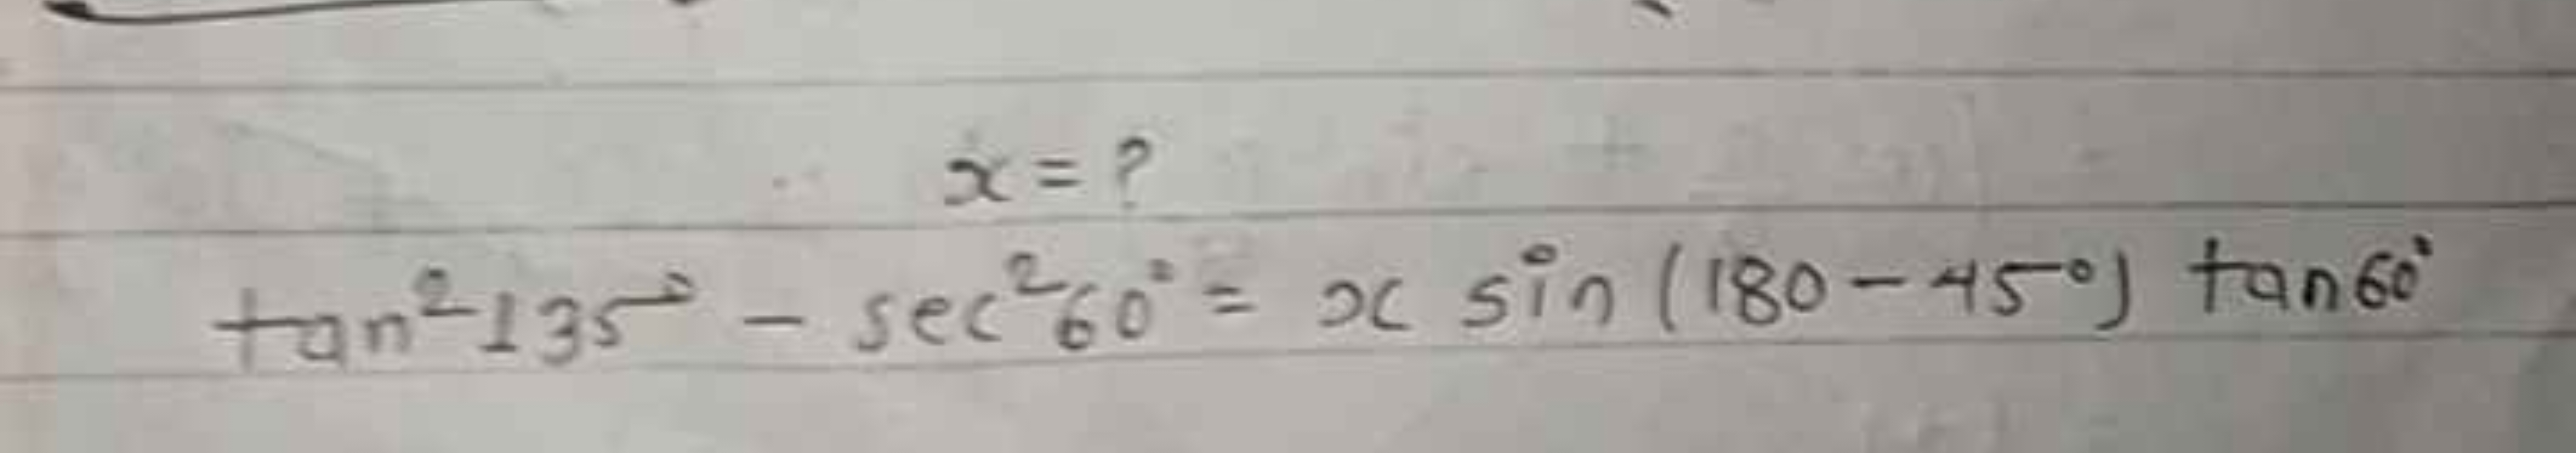 x = ?
tan²135° - sec²60° = x sin (180 - 45°) tan60°